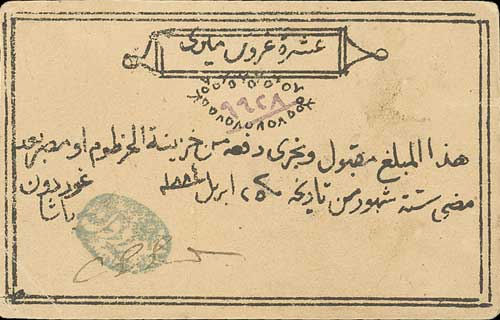 عشرة غروش ميرى
٩٩٢٨
هذا المبلغ مقبول ويجرى دفعه من خزينة الخرطوم او مصر بعد
مضى ستة شهور من تاريخه ٢٥ ابريل ١٨٨٤ غوردون
باشا